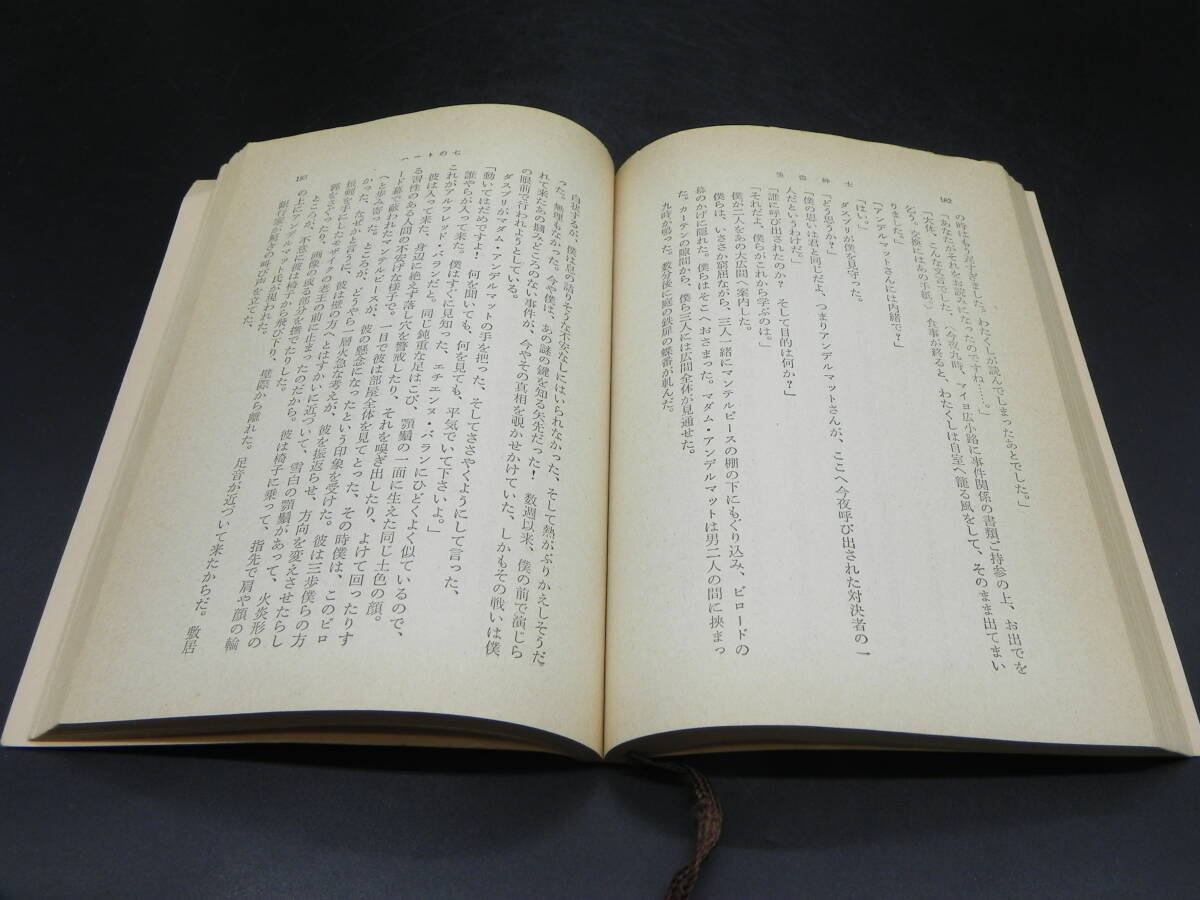 162
の時はもう遅すぎました。わたくしが読んでしまったあとでした。」
「あなたがそれをお読みになったのですね……。」
「大体、こんな文言でした、〈今夜九時、マイヨ広小路に事件関係の書類ご持参の上、お出でを
乞う。交換にはあの手紙。〉食事が終ると、わたくしは自室へ籠る風をして、そのまま出てまい
りました。」
「アンデルマットさんには内緒で？」
「はい。」
ダスプリが僕を見守った。
「どう思うか？」
「僕の思いは君と同じだよ、つまりアンデルマットさんが、ここへ今夜呼び出された対決者の一
人だというわけだ。」
「誰に呼び出されたのか？　そして目的は何か？」
「それだよ、僕らがこれから学ぶのは。」
僕が二人をあの大広間へ案内した。
僕らは、いささか窮屈ながら、三人一緒にマンテルピースの棚の下にもぐり込み、ビロードの
幕のかげに隠れた。僕らはそこへおさまった。マダム・アンデルマットは男二人の間に挟まっ
た。カーテンの隙間から、僕ら三人には広間全体が見通せた。
九時が鳴った。数分後に庭の鉄扉の蝶番が軋んだ。
ハートの七
183
白状するが、僕は息の詰りそうな不安なしにはいられなかった、そして熱がぶりかえしそうだ
った。無理もなかった。今や僕は、あの謎の鍵を知る矢先だった！　数週以来、僕の前で演じら
れて来たあの掴みどころのない事件が、今やその真相を覗かせかけていた、しかもその戦いは僕
の眼前で行われようとしている。
ダスプリがマダム・アンデルマットの手を把った、そしてささやくようにして言った、
「動いてはだめですよ！　何を聞いても、何を見ても、平気でいて下さいよ。」
誰やらが入って来た。僕はすぐに見知った、エチエンヌ・バランにひどくよく似ているので、
これがアルフレッド・バランだと。同じ鈍重な足はこび、顎鬚の一面に生えた同じ土色の顔。
彼は入って来た、身辺に絶えず落し穴を警戒したり、それを嗅ぎ出したり、よけて回ったりす
る習性のある人間の不安げな様子で。一目で彼は部屋全体を見てとった、その時僕は、このビロ
ード幕で蔽われたマンテルピースが、彼の懸念になったという印象を受けた。彼は三歩僕らの方
へと歩み寄った。ところが、どうやら一層火急な考えが、彼を振返らせ、方向を変えさせたらし
かった、なぜかと言うに、彼は壁の方へとはすかいに近づいて、雪白の顎鬚があって、火炎形の
短剣を手にしたモザイクの老王の前に止まったのだから。彼は椅子に乗って、指先で肩や顔の輪
郭をさぐったり、画像の或る部分を撫でたりした。
ところが、不意に彼は椅子から飛び下り、壁際から離れた。足音が近づいて来たからだ。敷居
の上にアンデルマット氏が現われた。
銀行家が驚きの呼び声を立てた、